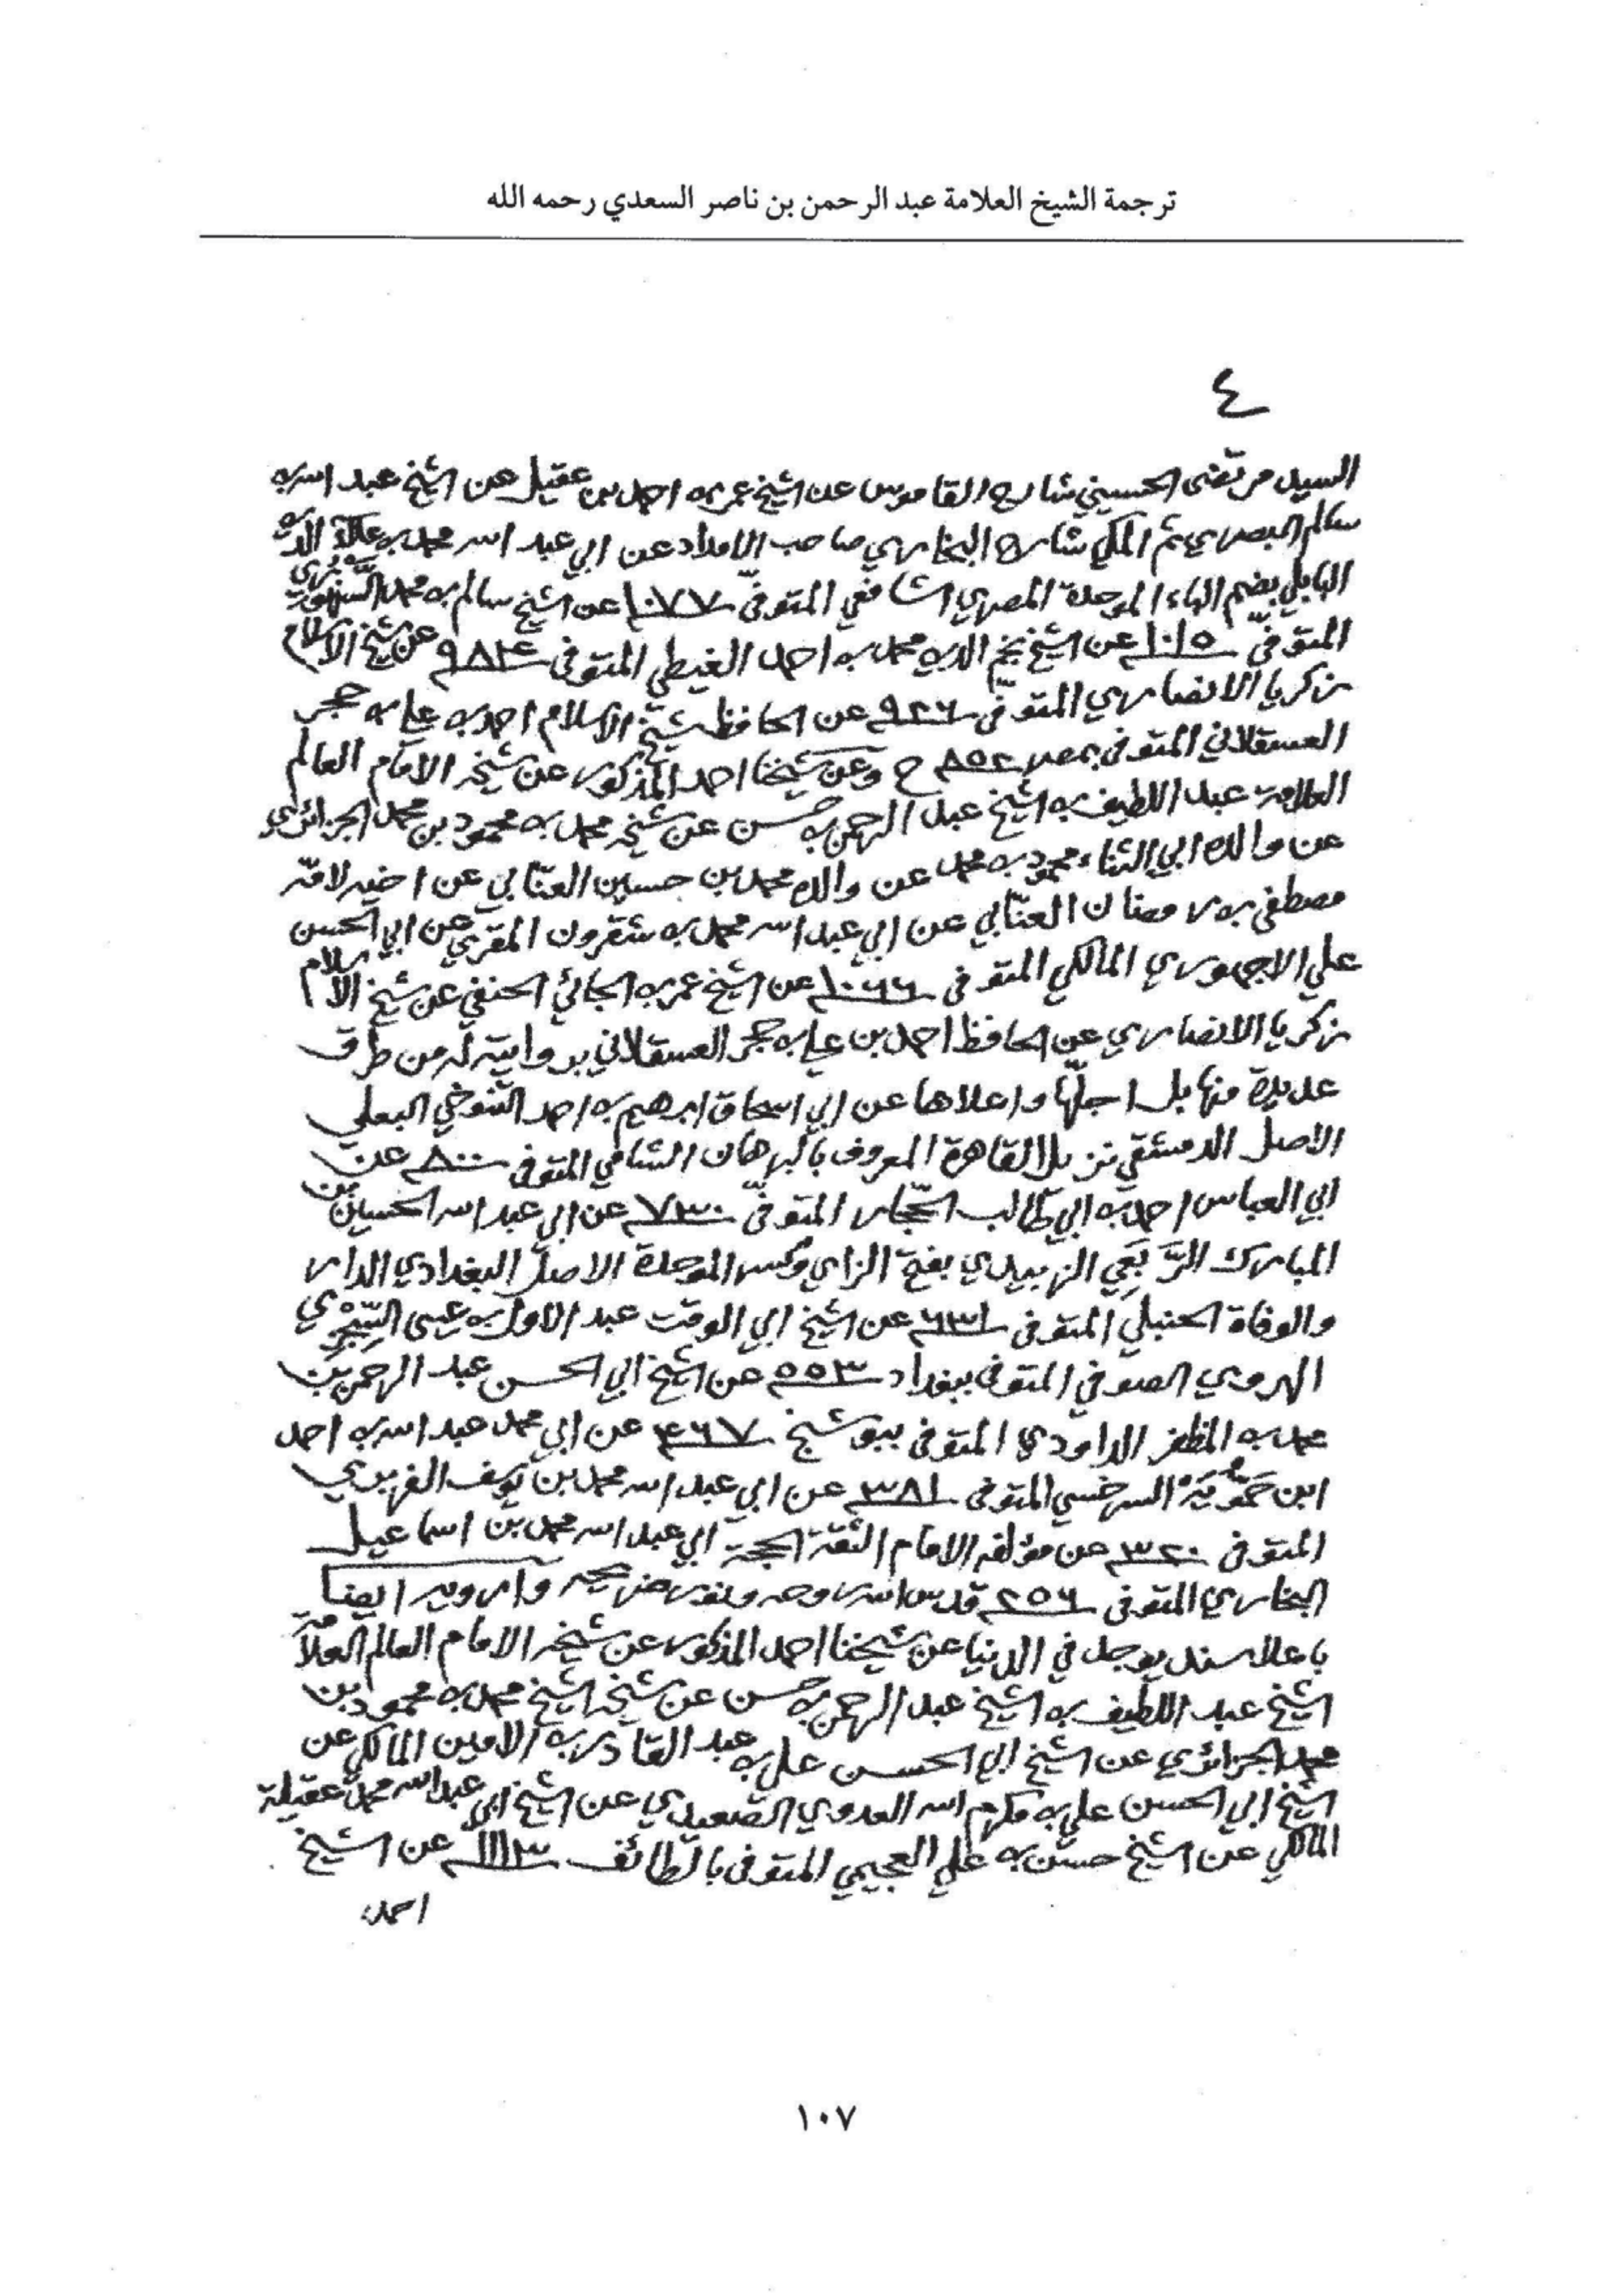 ترجمة الشيخ العلامة عبد الرحمن بن ناصر السعدي رحمه الله
٤
السيد مرتضى الحسيني شارح القاموس عن الشيخ عمر بن احمد بن عقيل عن الشيخ عبد الله بن
سالم البصري ثم المكي شارح البخاري صاحب الامداد عن ابي عبد الله محمد بن علاء الدين
البابلي بضم الباء الموحدة المصري الشافعي المتوفى ١٠٧٧ عن الشيخ سالم بن محمد السنهوري
المتوفى ١٠١٥ عن الشيخ نجم الدين محمد بن احمد الغيطي المتوفى ٩٨٤ عن شيخ الاسلام
زكريا الانصاري المتوفى ٩٢٦ عن الحافظ شيخ الاسلام احمد بن علي بن حجر
العسقلاني المتوفى بمصر ٨٥٢ ح وعن شيخنا احمد المذكور عن شيخه الامام العالم
العلامة عبد اللطيف بن الشيخ عبد الرحمن بن حسن عن شيخه محمد بن محمود بن محمد الجزائري
عن والده ابي الثناء محمود بن محمد عن والده محمد بن حسين العنابي عن اخيه لامه
مصطفى بن رمضان العنابي عن ابي عبد الله محمد بن شقرون المقري عن ابي الحسن
علي الاجهوري المالكي المتوفى ١٠٦٦ عن الشيخ عمر بن الجائي الحنفي عن شيخ الاسلام
زكريا الانصاري عن الحافظ احمد بن علي بن حجر العسقلاني بروايته له من طرق
عديدة منها بل اجلّها واعلاها عن ابي اسحاق ابرهيم بن احمد التنوخي البعلي
الاصل الدمشقي نزيل القاهرة المعروف بالبرهان الشامي المتوفى ٨٠٠ عن
ابي العباس احمد بن ابي طالب الحجّار المتوفى ٧٣٠ عن ابي عبد الله الحسين بن
المبارك الرَّبَعِي الزبيدي بفتح الزاي وكسر الموحدة الاصل البغدادي الدار
والوفاة الحنبلي المتوفى ٦٣١ عن الشيخ ابي الوقت عبد الاول بن عيسى السِّجْزِي
الهروي الصوفي المتوفى ببغداد ٥٥٣ عن الشيخ ابي الحسن عبد الرحمن بن
محمد بن المظفر الداودي المتوفى ببوشنج ٤٦٧ عن ابي محمد عبد الله بن احمد
ابن حَمُّويَهْ السرخسي المتوفى ٣٨١ عن ابي عبد الله محمد بن يوسف الفربري
المتوفى ٣٢٠ عن مؤلفه الامام الثقة الحجة ابي عبد الله محمد بن اسماعيل
البخاري المتوفى ٢٥٦ قدس الله روحه ونور ضريحه وارويه ايضا
باعلا سند يوجد في الدنيا عن شيخنا احمد المذكور عن شيخه الامام العالم العلامة
الشيخ عبد اللطيف بن الشيخ عبد الرحمن بن حسن عن شيخه الشيخ محمد بن محمود بن
محمد الجزائري عن الشيخ ابي الحسن علي بن عبد القادر بن الامين المالكي عن
الشيخ ابي الحسن علي بن مكرم الله العدوي الصعيدي عن الشيخ ابي عبد الله محمد عقيلة
المالكي عن الشيخ حسن بن علي العجيمي المتوفى بالطائف ١١١٣ عن الشيخ
احمد
١٠٧